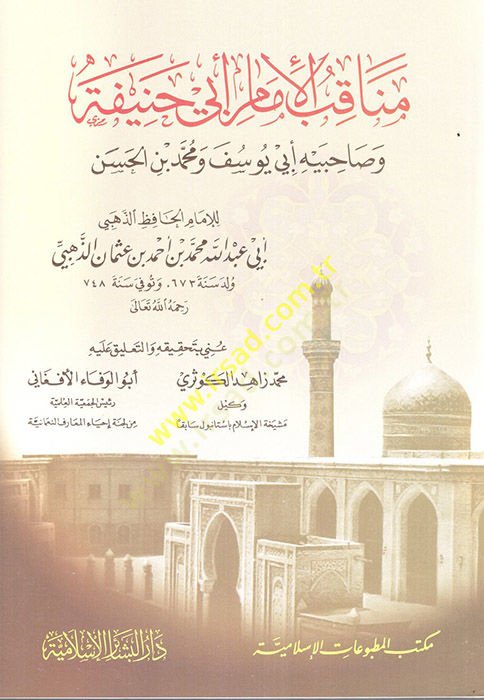 مَنَاقِبُ الْأَمَامِ أَبِي حَنِيفَةَ
وَصَاحِبَيْهِ أَبِي يُوسُفَ وَمُحَمَّدِ بْنِ الحَسَنِ
للإمَامِ الحَافِظِ الذَّهَبِي
أَبِي عَبْدِ اللَّه مُحَمَّد بْن أَحمَد بْن عثمَان الذَّهَبِيِّ
وُلِدَ سَنَة ٦٧٣. وَتُوفِيَ سَنَة ٧٤٨
رَحِمَهُ اللَّه تَعَالَى
عُنِيَ بتَحْقِيقِهِ وَالتَّعْلِيقِ عَلَيْهِ
محمّد زاهد الكوثري
أبو الوفَاء الأفغَاني
وَكِيل
مَشيَخَة الإسْلَام بإستَانبُول سَابقًا
رَئيسُ الجَمْعِيَّة العِلميَّة
مِن لجنَة إحيَاء المعَارف النعمَانيَّة
www.rsad.com.tr
مكتب المطبوعات الإسلاميَّة
دَارُ البَشَائِرِ الإسْلَامِيَّة